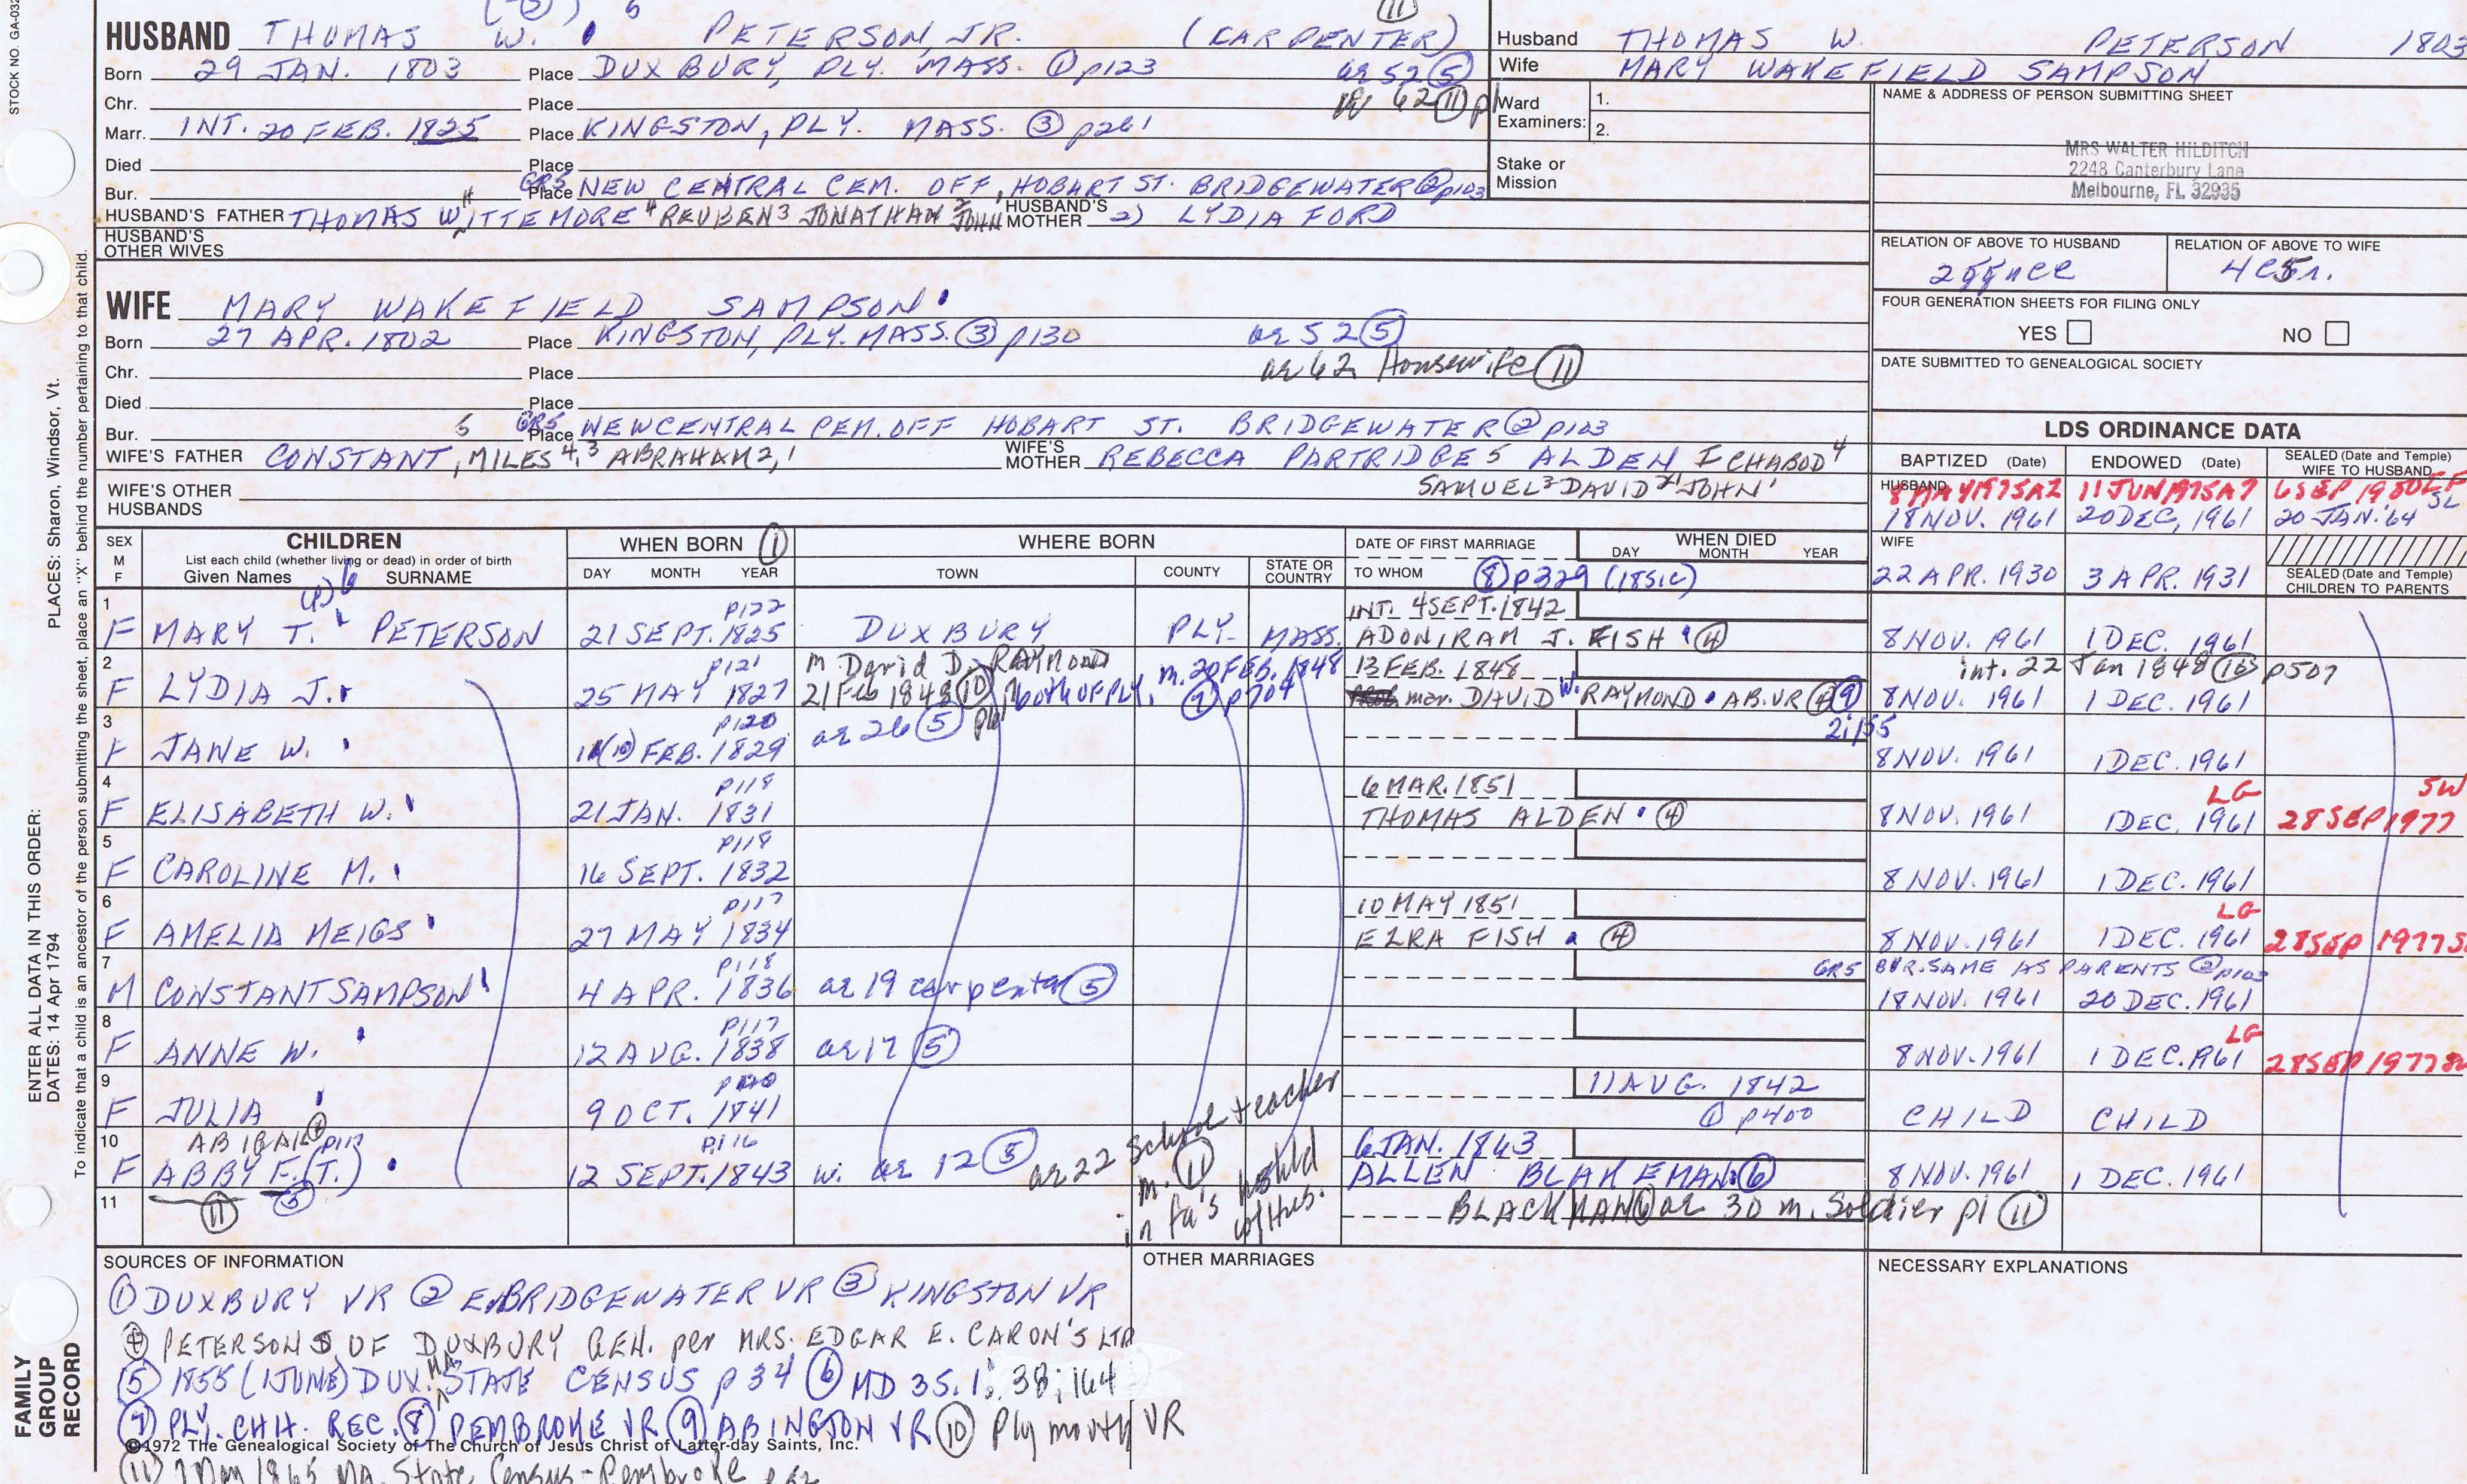 STOCK NO. GA-032
HUSBAND THOMAS W. PETERSON, JR. (CARPENTER) (11)
Born 29 JAN. 1803 Place DUXBURY, PLY. MASS. ① p123 ae 52 ⑤
Chr. Place 62 ⑪ p1
Marr. INT. 20 FEB. 1825 Place KINGSTON, PLY. MASS. ③ p261
Died Place
Bur. GR5 Place NEW CENTRAL CEM. OFF HOBART ST. BRIDGEWATER ② p103
HUSBAND'S FATHER THOMAS WHITTEMORE 4 REUBEN 3 JONATHAN 2 JOHN HUSBAND'S MOTHER 2) LYDIA FORD
HUSBAND'S OTHER WIVES
Husband THOMAS W. PETERSON 1803
Wife MARY WAKEFIELD SAMPSON
Ward Examiners: 1.
2.
Stake or Mission
NAME & ADDRESS OF PERSON SUBMITTING SHEET
MRS WALTER HILDITCH
2248 Canterbury Lane
Melbourne, FL 32935
RELATION OF ABOVE TO HUSBAND RELATION OF ABOVE TO WIFE
FOUR GENERATION SHEETS FOR FILING ONLY
YES NO
DATE SUBMITTED TO GENEALOGICAL SOCIETY
WIFE MARY WAKEFIELD SAMPSON
Born 27 APR. 1802 Place KINGSTON, PLY. MASS. ③ p130 ae 52 ⑤
Chr. Place ae 62 Housewife ⑪
Died Place
Bur. GR5 Place NEW CENTRAL CEM. OFF HOBART ST. BRIDGEWATER ② p103
WIFE'S FATHER CONSTANT 5, MILES 4,3 ABRAHAM 2,1 WIFE'S MOTHER REBECCA PARTRIDGE 5 ALDEN ICHABOD 4
WIFE'S OTHER HUSBANDS SAMUEL 3 DAVID 2 JOHN 1
LDS ORDINANCE DATA
BAPTIZED (Date) ENDOWED (Date) SEALED (Date and Temple) WIFE TO HUSBAND
HUSBAND 8 MAY 1975 AZ 11 JUN 1975 AZ 6 SEP 1980
18 NOV. 1961 20 DEC, 1961 20 JAN. '64 SL
WIFE 22 APR. 1930 3 APR. 1931
SEALED (Date and Temple) CHILDREN TO PARENTS
SEX M F CHILDREN List each child (whether living or dead) in order of birth Given Names SURNAME
WHEN BORN ① DAY MONTH YEAR
WHERE BORN TOWN COUNTY STATE OR COUNTRY
DATE OF FIRST MARRIAGE TO WHOM WHEN DIED DAY MONTH YEAR
⑧ p329 (1851c)
1 p122 INT. 4 SEPT. 1842
F MARY T. PETERSON 21 SEPT. 1825 DUXBURY PLY. MASS. ADONIRAM J. FISH ④ 8 NOV. 1961 1 DEC. 1961
2 p121 m David D. RAYMOND m. 20 FEB. 1848 13 FEB. 1848 int. 22 Jan 1848 p507
F LYDIA J. 25 MAY 1827 21 Feb 1848 ⑩ both of PLY. ⑦ p704 mar. DAVID W. RAYMOND AB. VR ⑨ 8 NOV. 1961 1 DEC. 1961
3 p120 2i/155
F JANE W. FEB. 1829 ae 26 ⑤ 8 NOV. 1961 1 DEC. 1961
4 p118 6 MAR. 1851 LG SW
F ELISABETH W. 21 JAN. 1831 THOMAS ALDEN ④ 8 NOV. 1961 1 DEC. 1961 28 SEP 1977
5 p118
F CAROLINE M. 16 SEPT. 1832 8 NOV. 1961 1 DEC. 1961
6 p117 10 MAY 1851 LG
F AMELIA MEIGS 27 MAY 1834 EZRA FISH ④ 8 NOV. 1961 1 DEC. 1961 28 SEP 1977 S
7 p118 GR5 BUR. SAME AS PARENTS ② p103
M CONSTANT SAMPSON 4 APR. 1836 ae 19 carpenter ⑤ 18 NOV. 1961 20 DEC. 1961
8 p117 LG
F ANNE W. 12 AUG. 1838 ae 17 ⑤ 8 NOV. 1961 1 DEC. 1961 28 SEP 1977 SW
9 11 AUG. 1842
F JULIA 9 OCT. 1841 ① p400 CHILD CHILD
10 ABIGAIL ④ p117 p116 6 JAN. 1863
F ABBY F. (T.) 12 SEPT. 1843 w. ae 12 ⑤ ae 22 School teacher m. ⑪ in fa's hshld ALLEN BLAKEMAN ⑥ 8 NOV. 1961 1 DEC. 1961
11 ⑪ ⑤ BLACKMAN ⑥ ae 30 m. Soldier p1 ⑪
SOURCES OF INFORMATION OTHER MARRIAGES NECESSARY EXPLANATIONS
① DUXBURY VR ② E. BRIDGEWATER VR ③ KINGSTON VR
④ PETERSONS OF DUXBURY GEN. per MRS. EDGAR E. CARON'S LTR
⑤ 1855 (1 JUNE) DUX. MA STATE CENSUS p 34 ⑥ MD 35.1; 38; 164
⑦ PLY. CHH. REC. ⑧ PEMBROKE VR ⑨ ABINGTON VR ⑩ Plymouth VR
©1972 The Genealogical Society of The Church of Jesus Christ of Latter-day Saints, Inc.
⑪ 1 May 1865 MA. State Census - Pembroke
ENTER ALL DATA IN THIS ORDER:
DATES: 14 Apr 1794 PLACES: Sharon, Windsor, Vt.
To indicate that a child is an ancestor of the person submitting the sheet, place an "X" behind the number pertaining to that child.
FAMILY GROUP RECORD